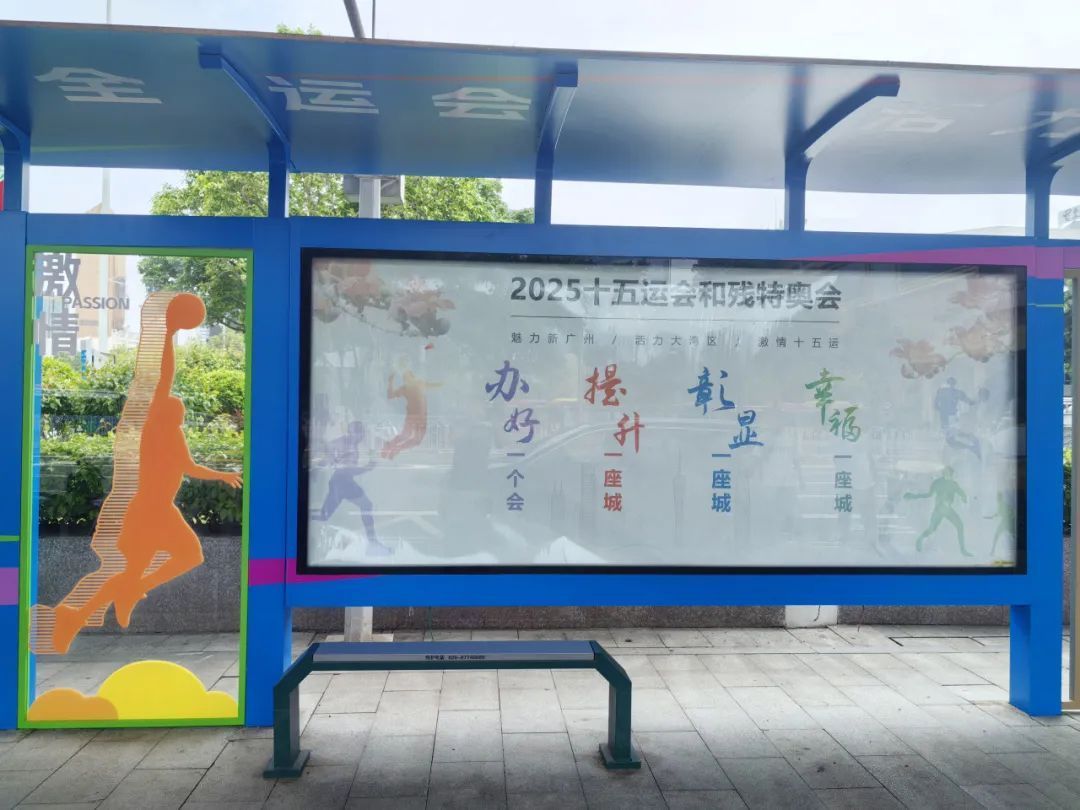 全运会
激情
PASSION
2025十五运会和残特奥会
魅力新广州 / 活力大湾区 / 激情十五运
办好一个会
提升一座城
彰显一座城
幸福一座城